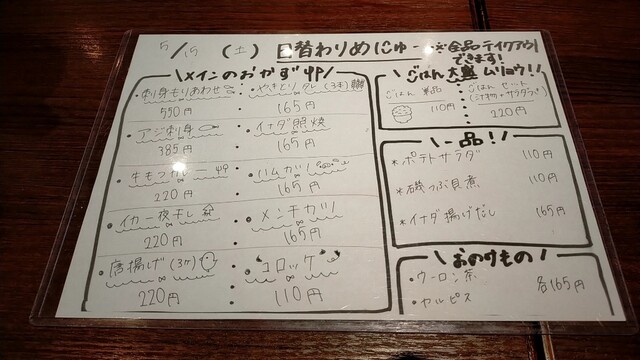 5/15 (土) 日替わりめにゅー ※全品テイクアウト
できます!
\メインのおかず/
・刺身もりあわせ
550円
・やきとり タレ (3本)
165円
・アジ刺身
385円
・イナダ照焼
165円
・牛もつカレー
220円
・ハムカツ
165円
・イカ一夜干し
220円
・メンチカツ
165円
・唐揚げ (3ケ)
220円
・コロッケ
110円
\ごはん大盛ムリョウ!!/
ごはん 単品
110円
・ごはん セット
220円
\一品!/
*ポテトサラダ 110円
*磯つぶ貝煮 110円
*イナダ揚げだし 165円
\おのみもの/
・ウーロン茶
・カルピス
各165円